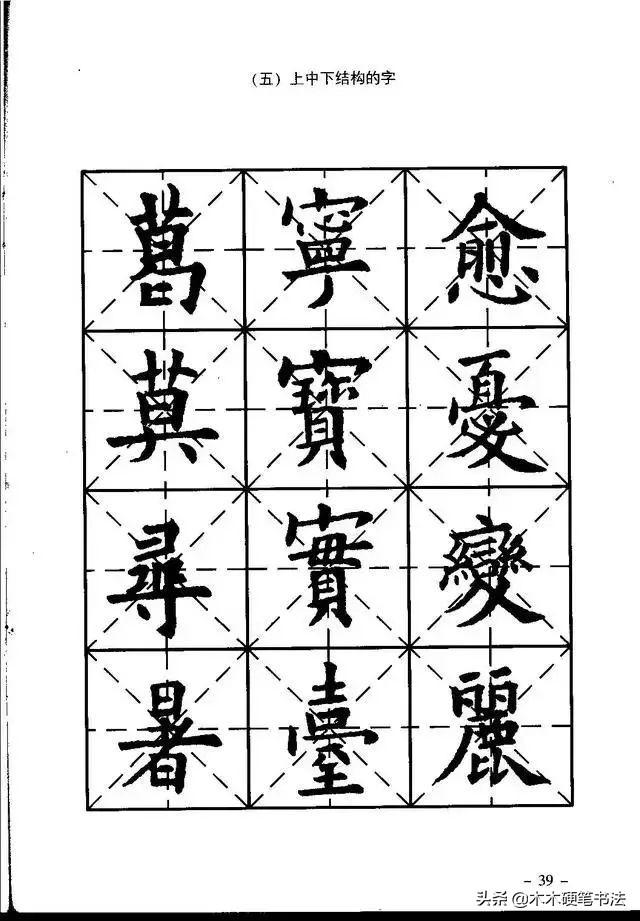 （五）上中下结构的字
愈憂變麗
寧寶實臺
葛莫尋暑
- 39 -
头条 @木木硬笔书法